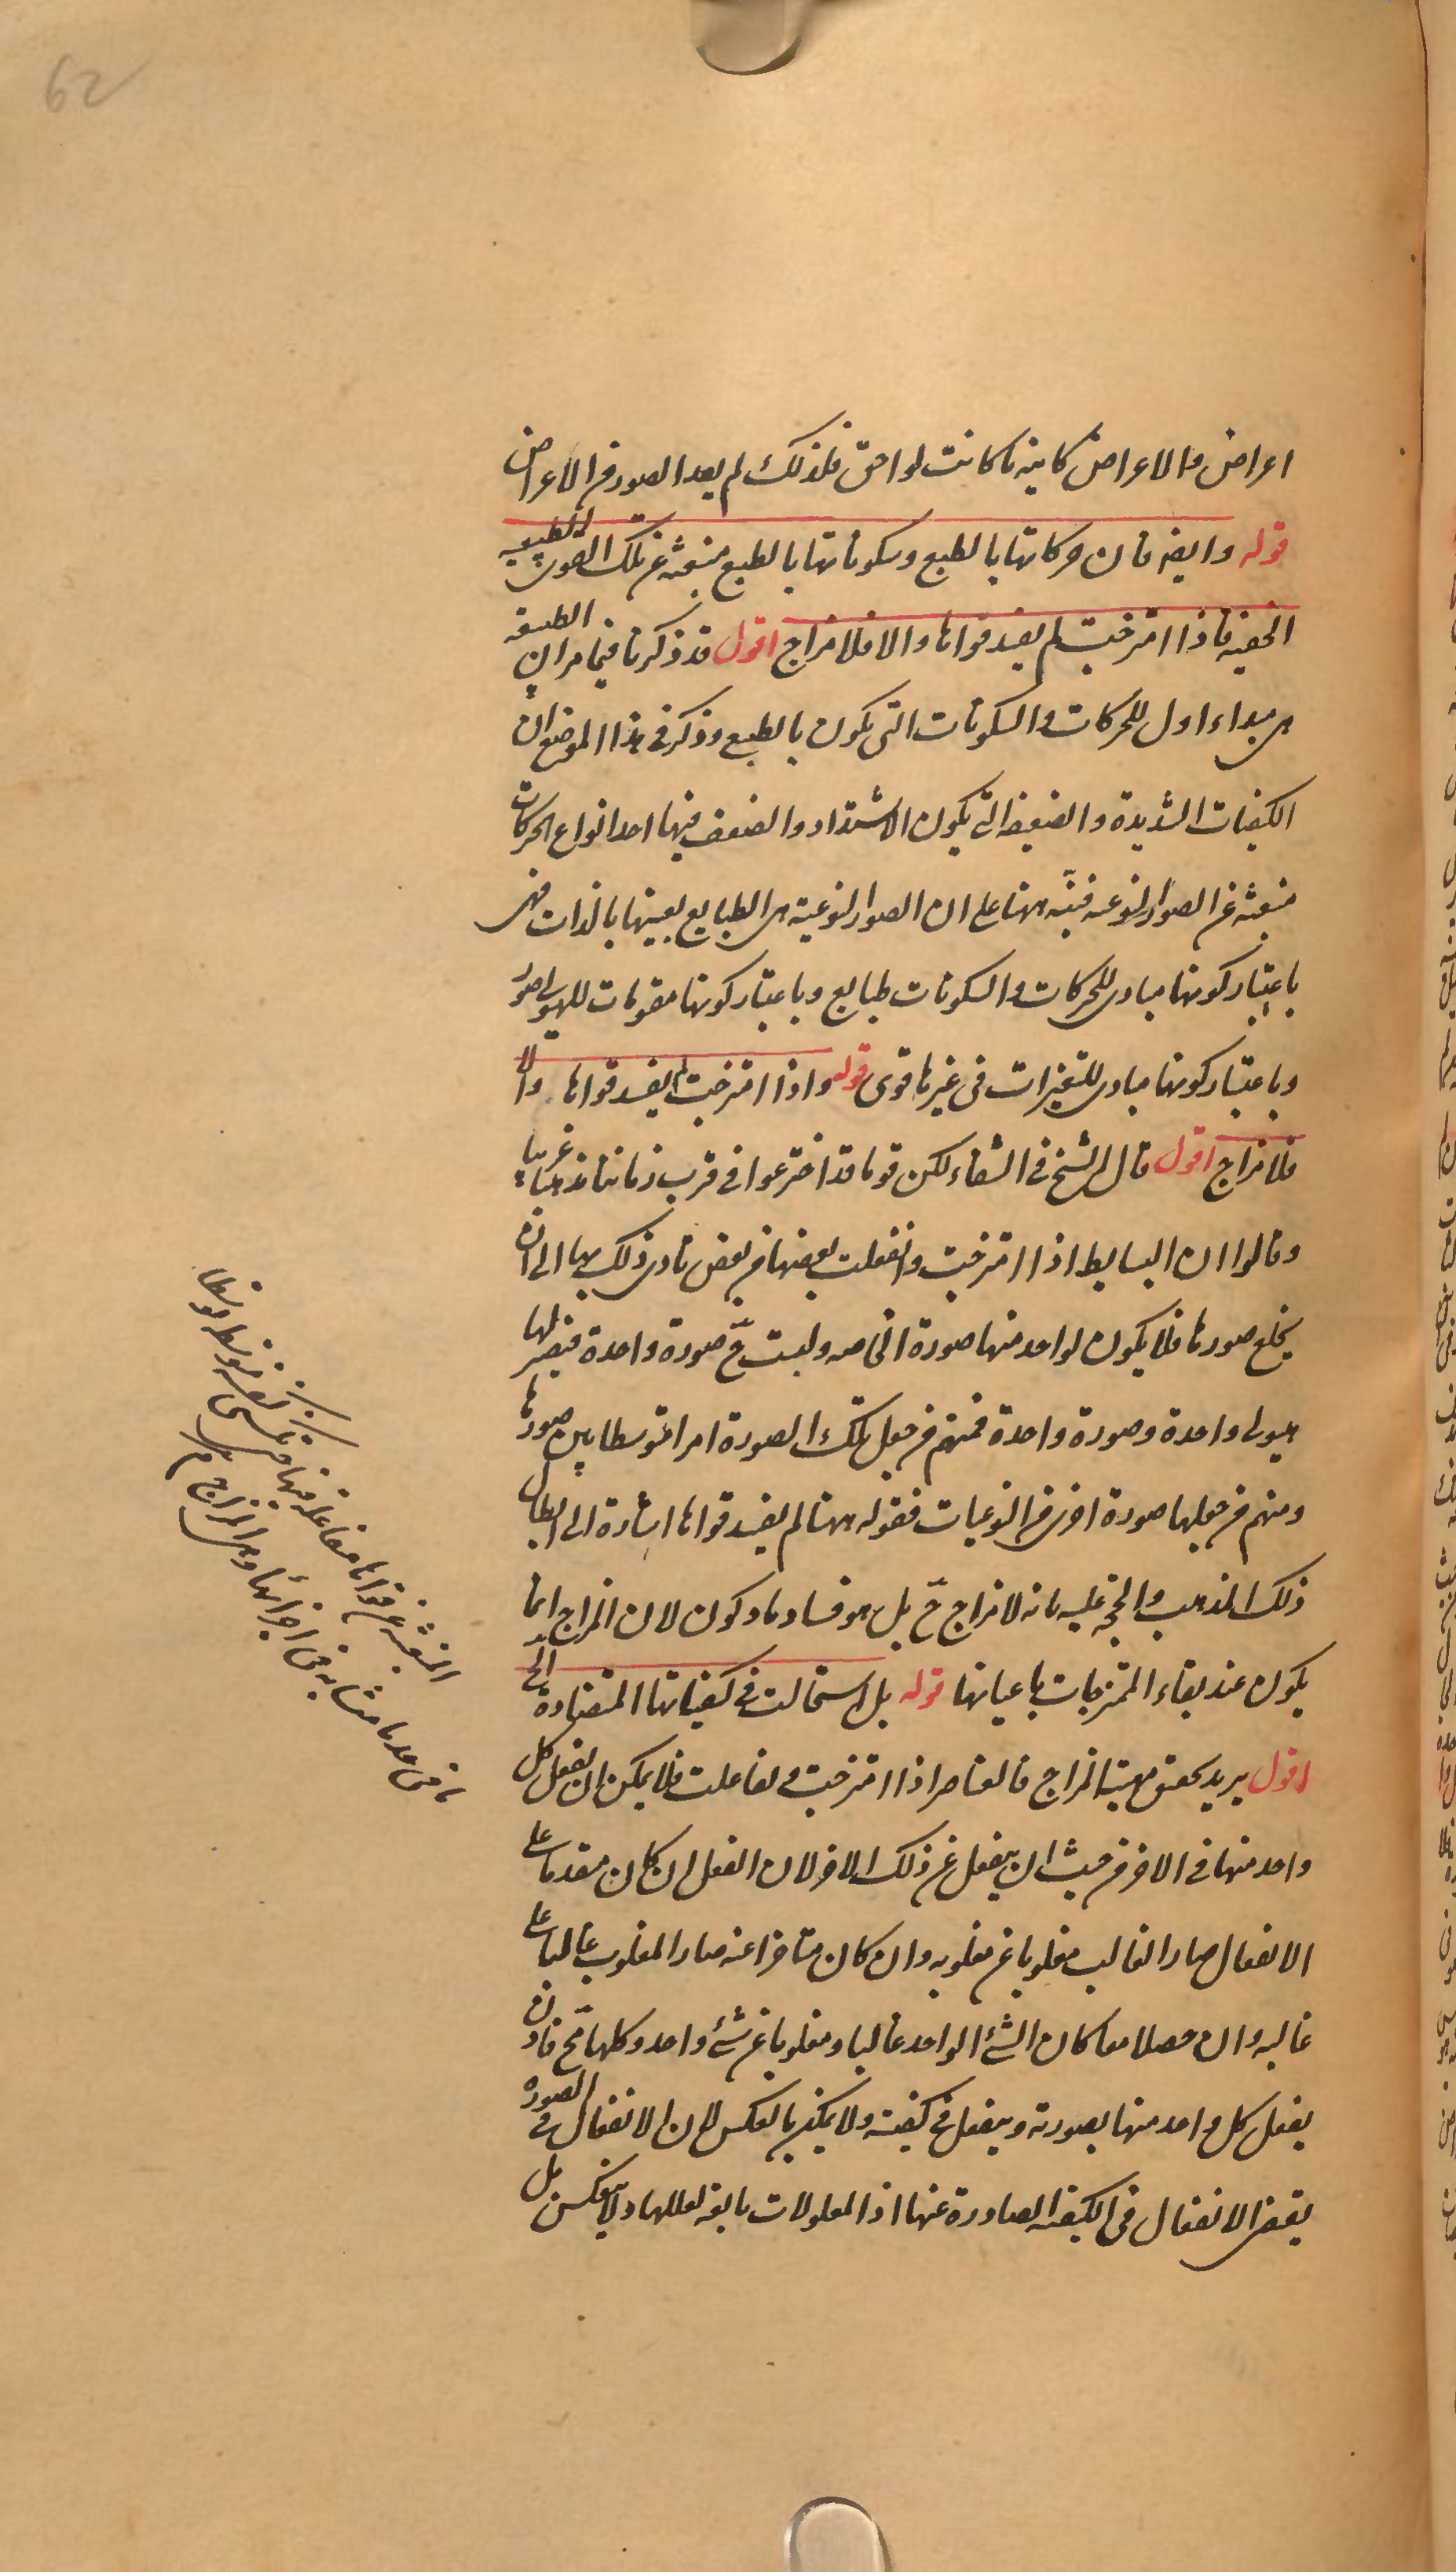 62
اعراض والاعراض كاينة ما كانت لواحق فلذلك لم يعد الصور من الاعراض
قوله وايضه فان حركاتها بالطبع وسكوناتها بالطبع منبعثة عن تلك الصور الطبيعية
الخفية فاذا امتزجت لم يفسد قواها والا فلا مزاج اقول قد ذكرنا فيما مر ان الطبيعة
هى مبداء اول للحركات والسكونات التى يكون بالطبع وذكر فى هذا الموضع ان
الكيفيات الشديدة والضعيفة التى يكون الاشتداد والضعف فيها احد انواع الحركات
منبعثة عن الصور النوعية فنبّه ههنا على ان الصور النوعية هى الطبايع بعينها بالذات فهى
باعتبار كونها مبادى للحركات والسكونات طبايع وباعتبار كونها مقومات للهيولى صور
وباعتبار كونها مبادى للتغيرات فى غيرها قوى قوله واذا امتزجت لم يفسد قواها والا
فلا مزاج اقول قال الشيخ فى الشفاء لكن قوما قد اخترعوا فى قرب زماننا مذهبا غريبا
وقالوا ان البسايط اذا امتزجت وانفعلت بعضها من بعض تادى ذلك بها الى ان
يخلع صورها فلا يكون لواحد منها صورة الخاصه ولبست ح صورة واحدة فيصير لها
هيولى واحدة وصورة واحدة فمنهم من جعل تلك الصورة امرا متوسطا بين صورها
ومنهم من جعلها صورة اخرى من النوعيات فقوله ههنا لم يفسد قواها اشارة الى ابطال
ذلك المذهب والحجة عليه بانه لا مزاج ح بل هو فساد ما وكون لان المزاج انما
يكون عند بقاء الممتزجات باعيانها قوله بل استحالت فى كيفياتها المتضادة الى
اقول يريد تحقيق مهية المزاج فالعناصر اذا امتزجت وتفاعلت فلا يمكن ان يفعل كل
واحد منها فى الاخر من حيث ان ينفعل عن ذلك الاخر لان الفعل ان كان مقدما على
الانفعال صار الغالب مغلوبا عن مغلوبه وان كان متاخرا عنه صار المغلوب غالبا على
غالبه وان حصلا معا كان الشئ الواحد غالبا ومغلوبا عن شئ واحد وكلها مح فاذن
يفعل كل واحد منها بصورته وينفعل فى كيفيته ولا يمكن بالعكس لان الانفعال فى الصورة
يقتضى الانفعال فى الكيفية الصادرة عنها اذ المعلولات تابعة لعللها ولا ينعكس بل
المنبعثة عن قواها متفاعلة فيها حتى
فى حد ما متشابه فى اجزائها وهى المزاج